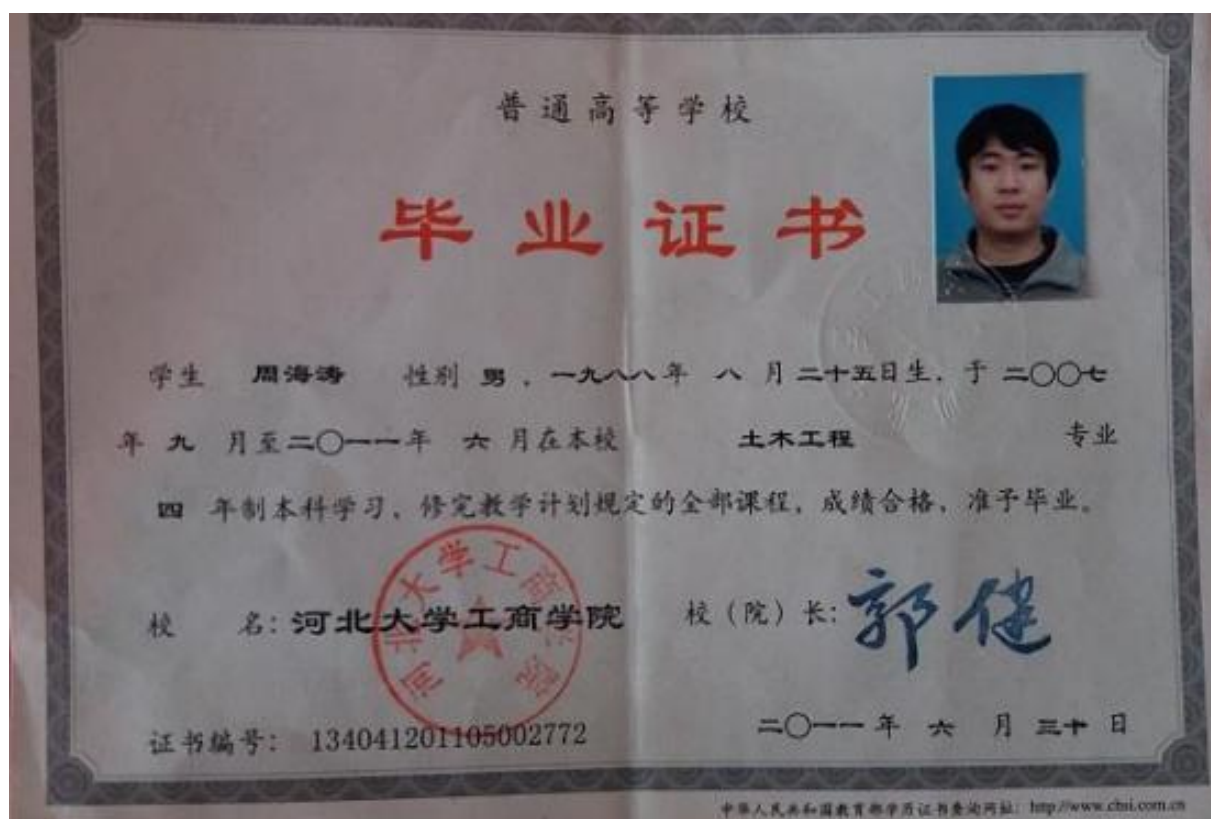 普通高等学校
毕业证书
学生 周海涛 性别 男 ，一九八八年 八 月 二十五日生，于 二〇〇七
年 九 月至二〇一一年 六 月在本校 土木工程 专业
四 年制本科学习，修完教学计划规定的全部课程，成绩合格，准予毕业。
河北大学工商学院
校 名：河北大学工商学院 校（院）长：郭健
证书编号： 134041201105002772 二〇一一年 六 月 三十 日
中华人民共和国教育部学历证书查询网址：http://www.chsi.com.cn